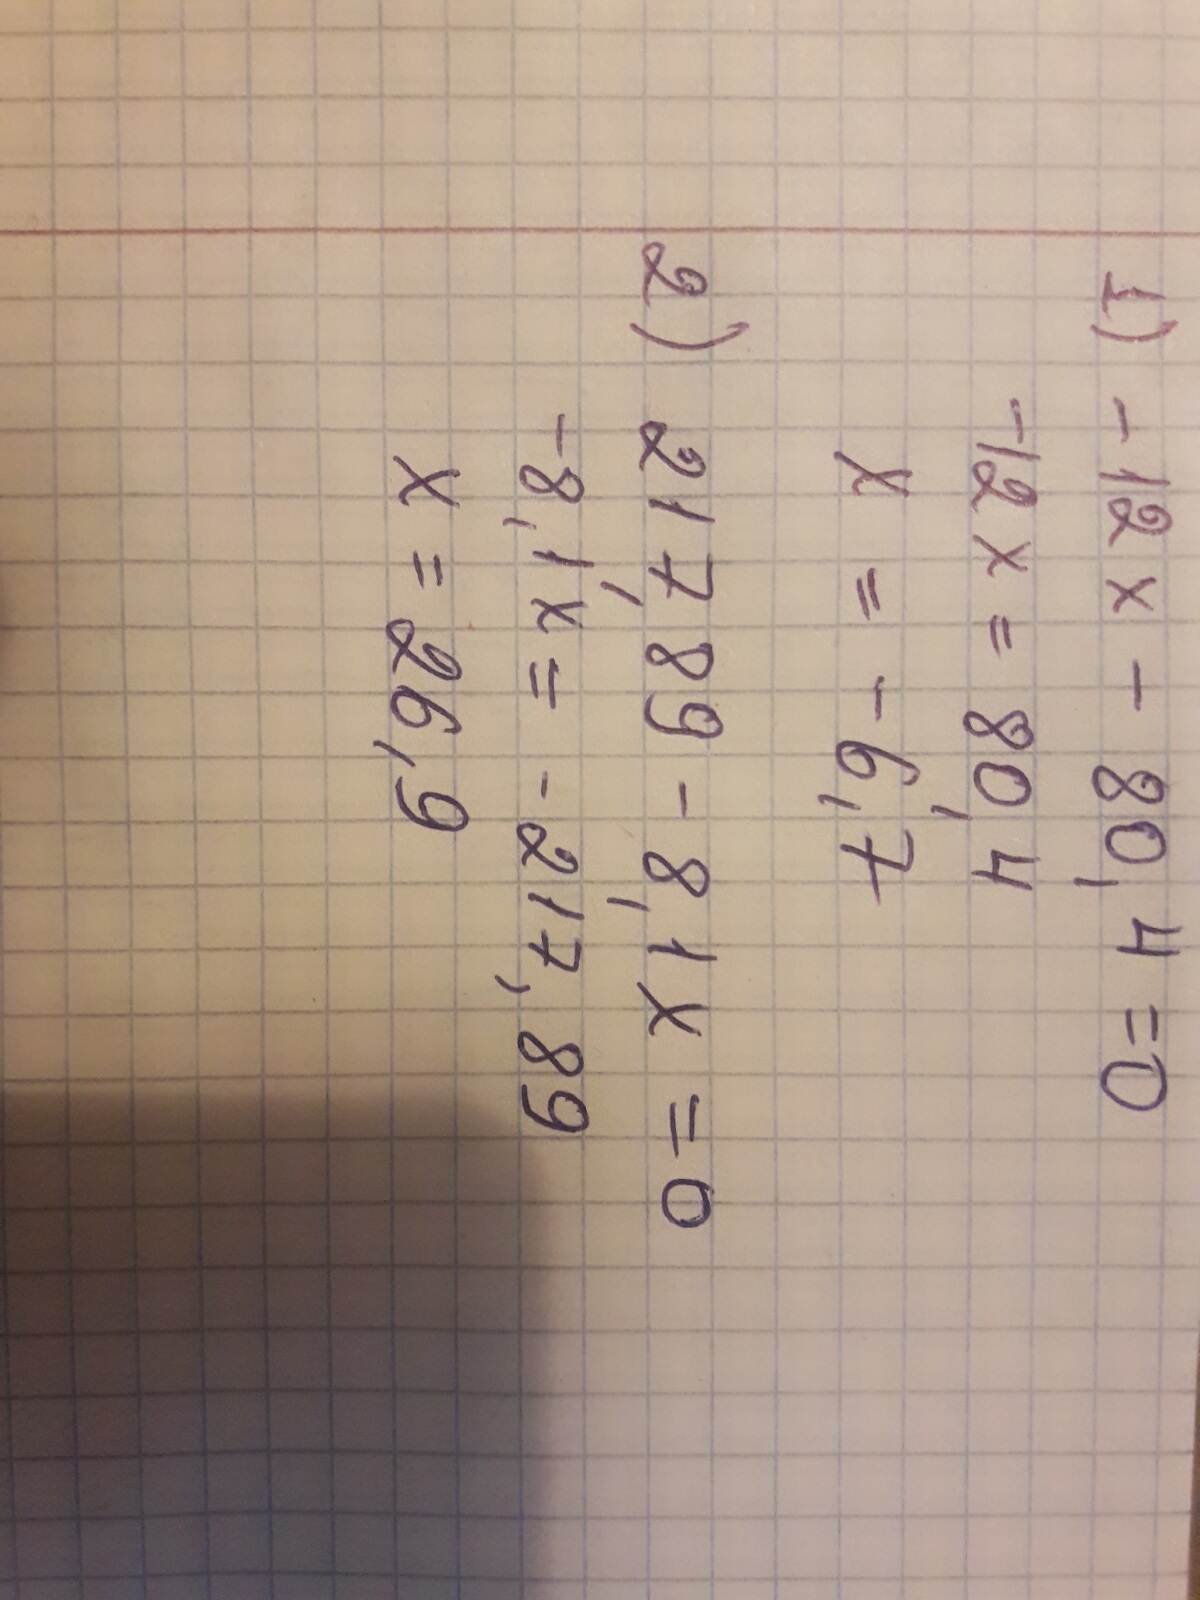 1) -12x - 80,4 =0
-12x = 80,4
x = -6,7
2) 217,89 - 8,1x = 0
-8,1x = -217,89
x = 26,9